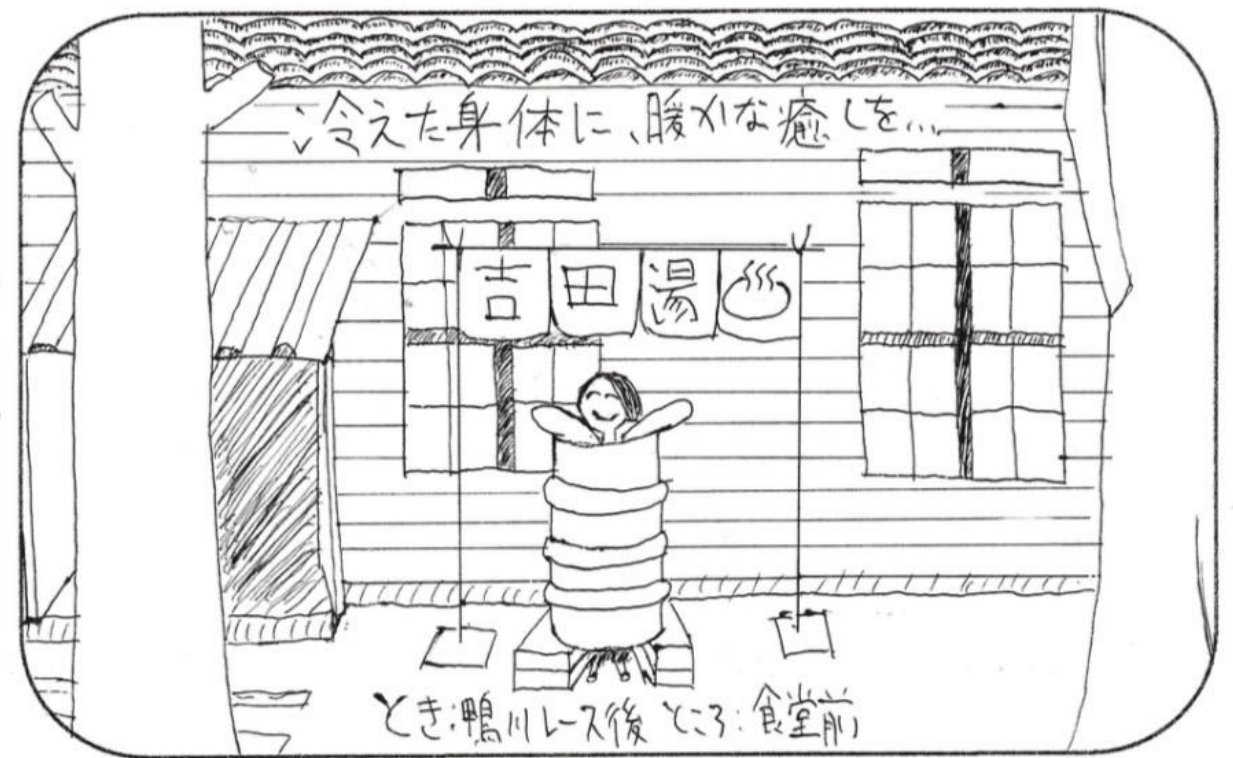 冷えた身体に、暖かな癒しを...
吉田湯♨
とき:鴨川レース後 ところ:食堂前